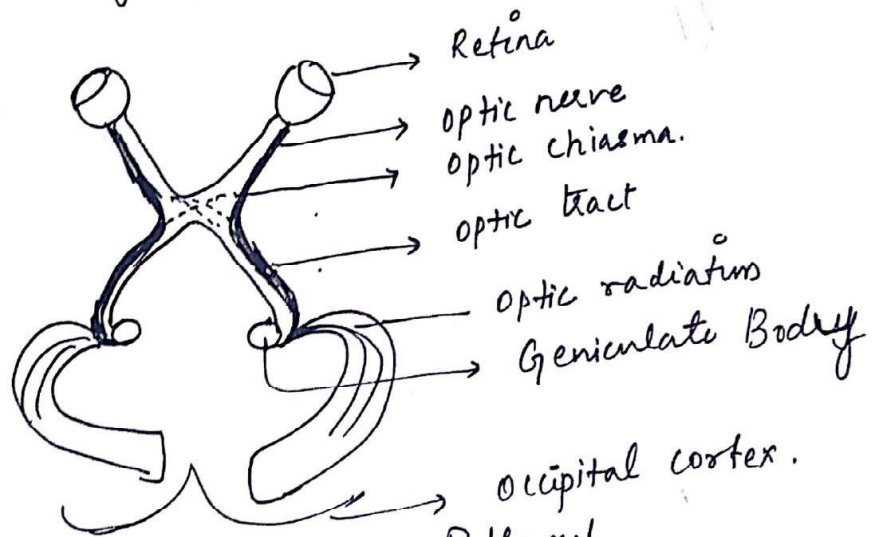 Retina
optic nerve
optic chiasma.
optic tract
optic radiations
Geniculate Body
Occipital cortex.